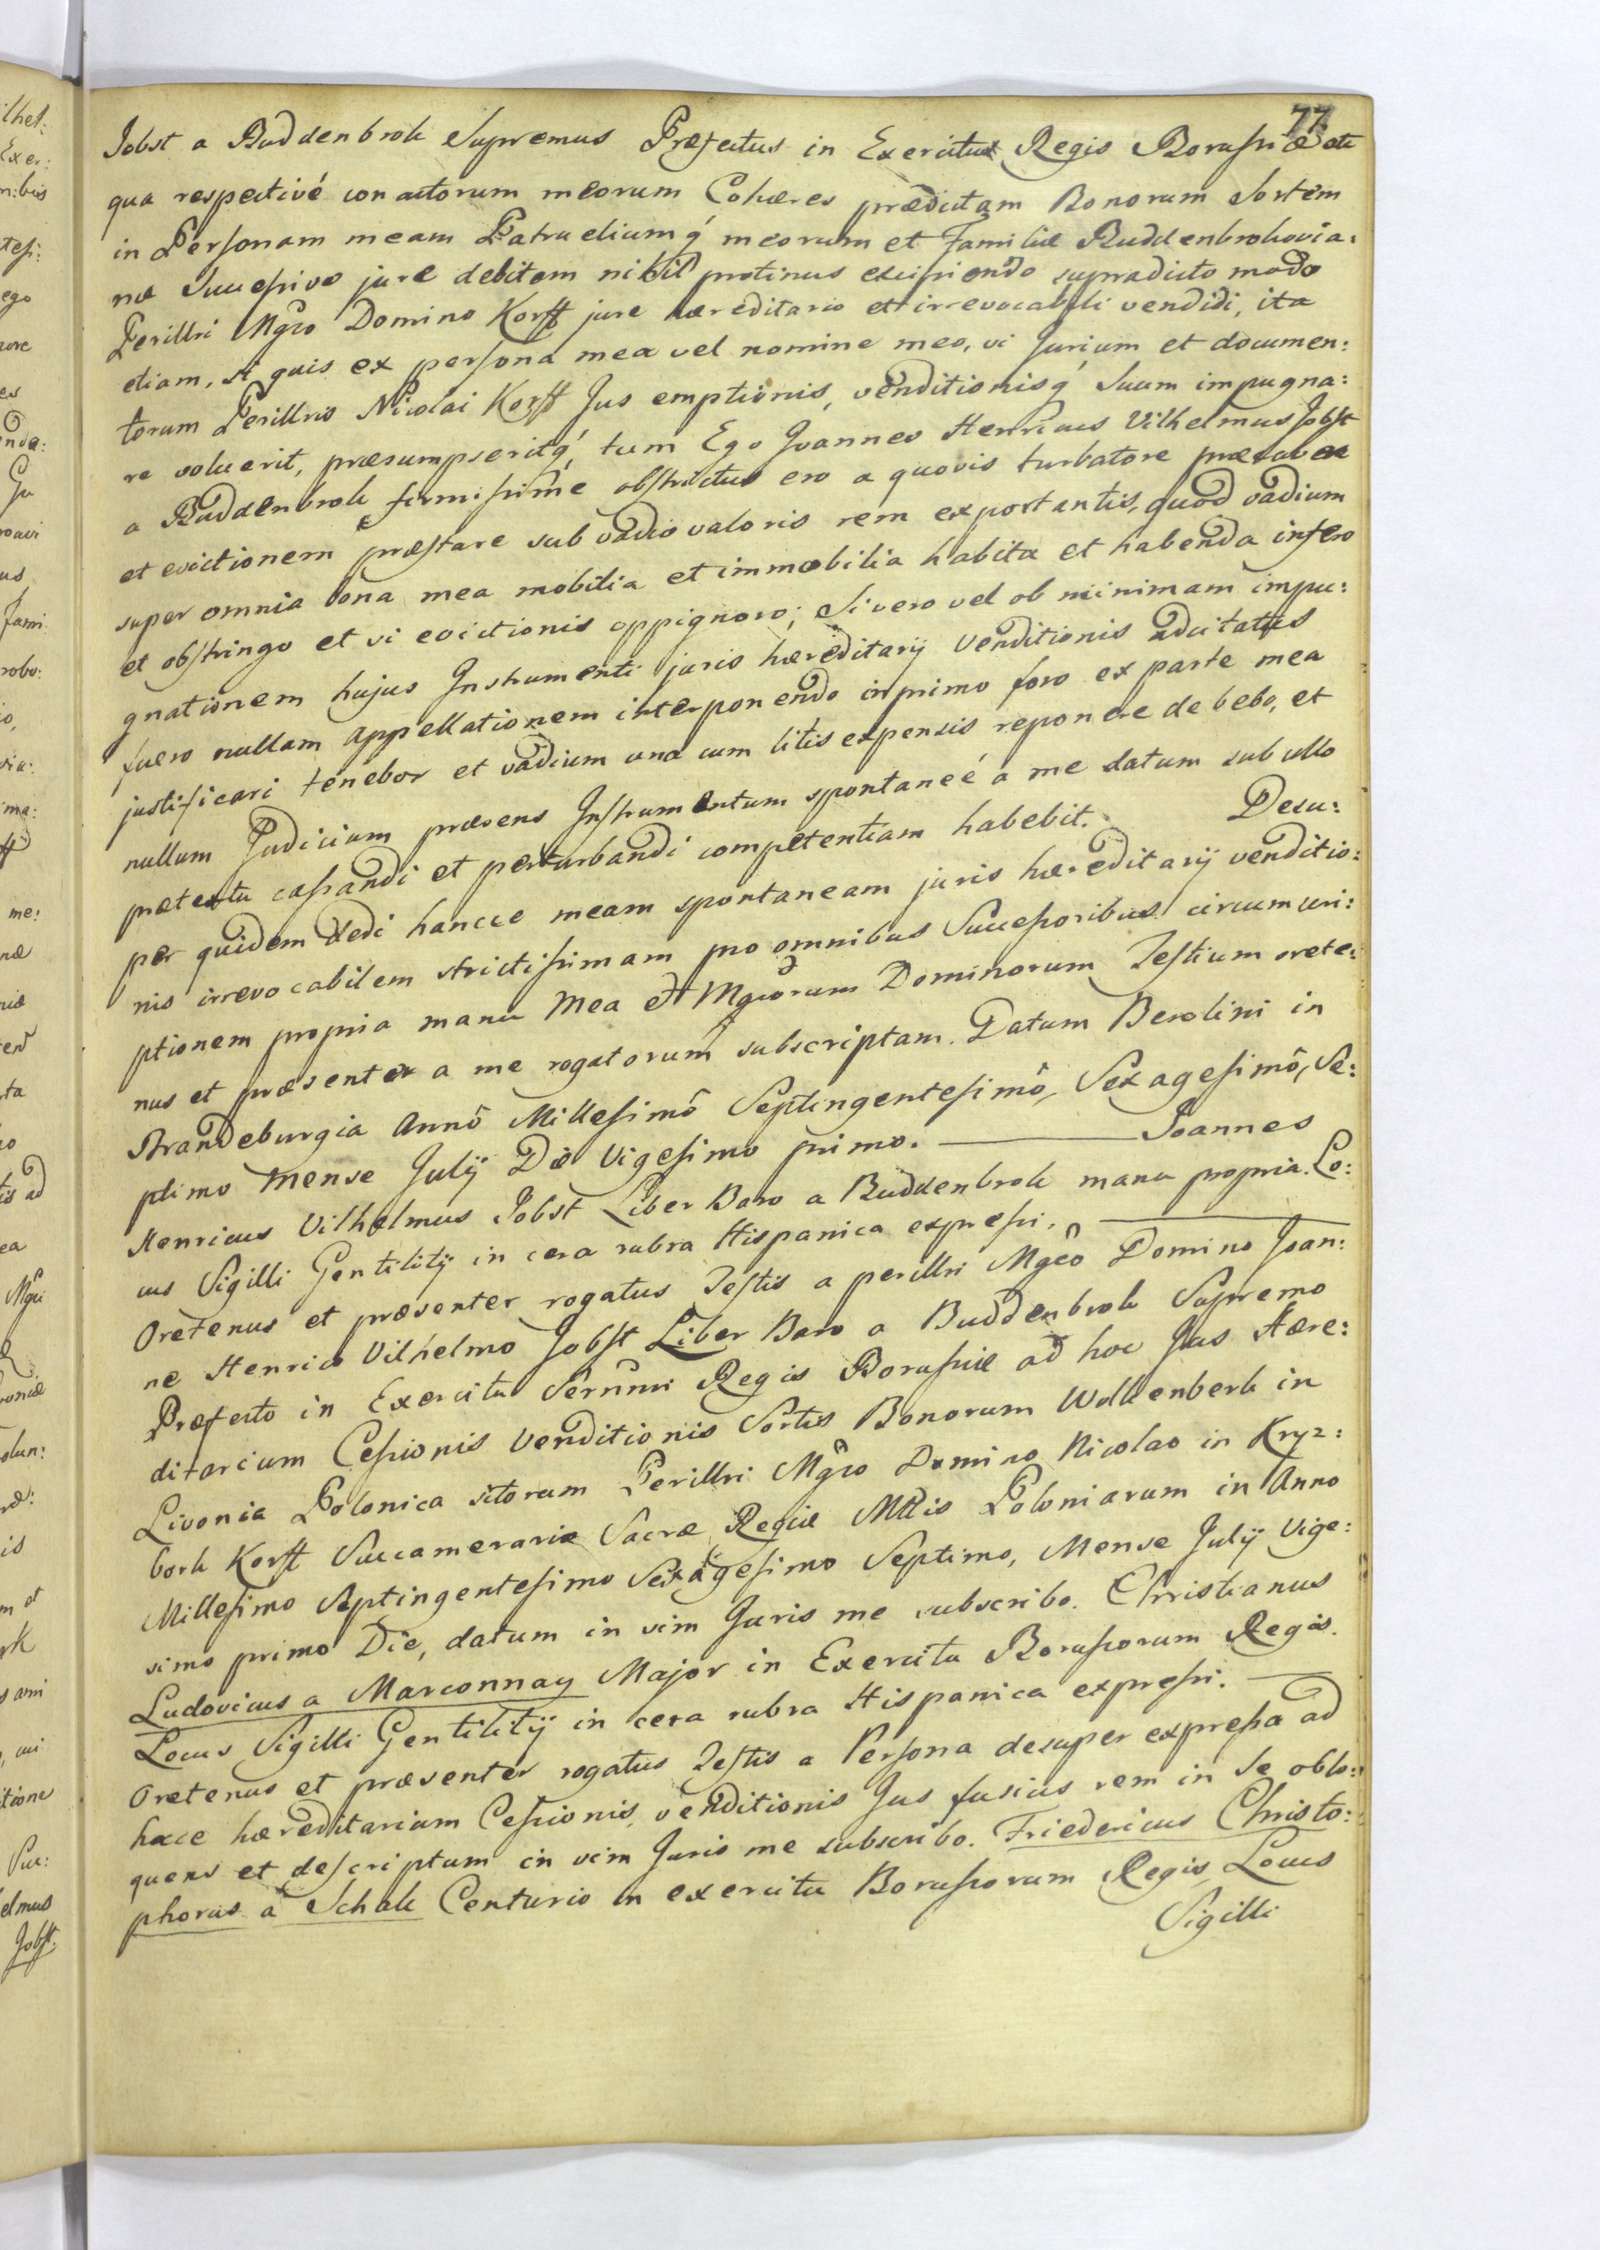 77
Jobst a Buddenbrok Supremus Præfectus in Exercitu Regis Borussiæ
qua respectivé conactorum meorum Cohæres prædictam Bonorum Sortem
in Personam meam Patrueliumq́ meorum et Familiæ Buddenbrokovia:
næ Successivo jure debitam nihil protinus excipiendo supradicto modo
Perillri Mgco Domino Korff jure hæreditario et irrevocabili vendidi, ita
etiam, si quis ex persona mea vel nomine meo, vi Jurium et documen:
torum Perillris Nicolai Korff Jus emptionis, venditionisq́ Suum impugna:
re voluerit, præsumpseritq́, tum Ego Joannes Henricus Vilhelmus Jobst
a Buddenbrok firmissime obstrictus ero a quovis turbatore
et evictionem præstare sub vadio valoris rem exportantis, quod vadium
super omnia bona mea mobilia et immobilia habita et habenda infero
et obstringo et vi evictionis oppignoro; Si vero vel ob minimam impu:
gnationem hujus Instrumenti juris hæreditarÿ Venditionis adcitatus
fuero nullam appellationem interponendo in primo foro ex parte mea
justificari tenebor et vadium una cum litis expensis reponere debebo, et
nullum Judicium præsens Instrumentum spontaneé a me datum sub ullo
prætextu cassandi et perturbandi competentiam habebit. Desu:
per quidem dedi hancce meam spontaneam juris hæreditarÿ venditio:
nis irrevocabilem strictissimam pro omnibus Successoribus circumscri:
ptionem propria manu Mea et Mgcorum Dominorum Testium orete:
nus et præsenter a me rogatorum subscriptam. Datum Berolini in
Brandeburgia Annô Millesimô Septingentesimô, Sexagesimô, Se:
ptimo Mense Julÿ Die Vigesimo primo. Joannes
Henricus Vilhelmus Jobst Liber Baro a Buddenbrok manu propria. Lo:
cus Sigilli Gentilitÿ in cera rubra Hispanica expressi.
Oretenus et præsenter rogatus Testis a perillri Mgco Domino Joan:
ne Henrico Vilhelmo Jobst Liber Baro a Buddenbrok Supremo
Præfecto in Exercitu Sernmi Regis Borussiæ ad hoc Jus Hære:
ditarium Cessionis Venditionis Sortis Bonorum Wolkenberk in
Livonia Polonica sitorum Perillri Mgco Domino Nicolao in Kryz:
bork Korff Succamerario Sacræ Regiæ Mttis Poloniarum in Anno
Millesimo Septingentesimo Sexagesimo Septimo, Mense Julÿ Vige:
simo primo Die, datum in vim Juris me subscribo. Christianus
Ludovicus a Marconnay Major in Exercitu Borussorum Regis.
Locus Sigilli Gentilitÿ in cera rubra Hispanica expressi.
Oretenus et præsenter rogatus Testis a Persona desuper expressa ad
hocce hæreditarium Cessionis, venditionis Jus fusius rem in se oblo:
quens et descriptum in vim Juris me subscribo. Friedericus Christo:
phorus a Schak Centurio in exercitu Borussorum Regis, Locus
Sigilli